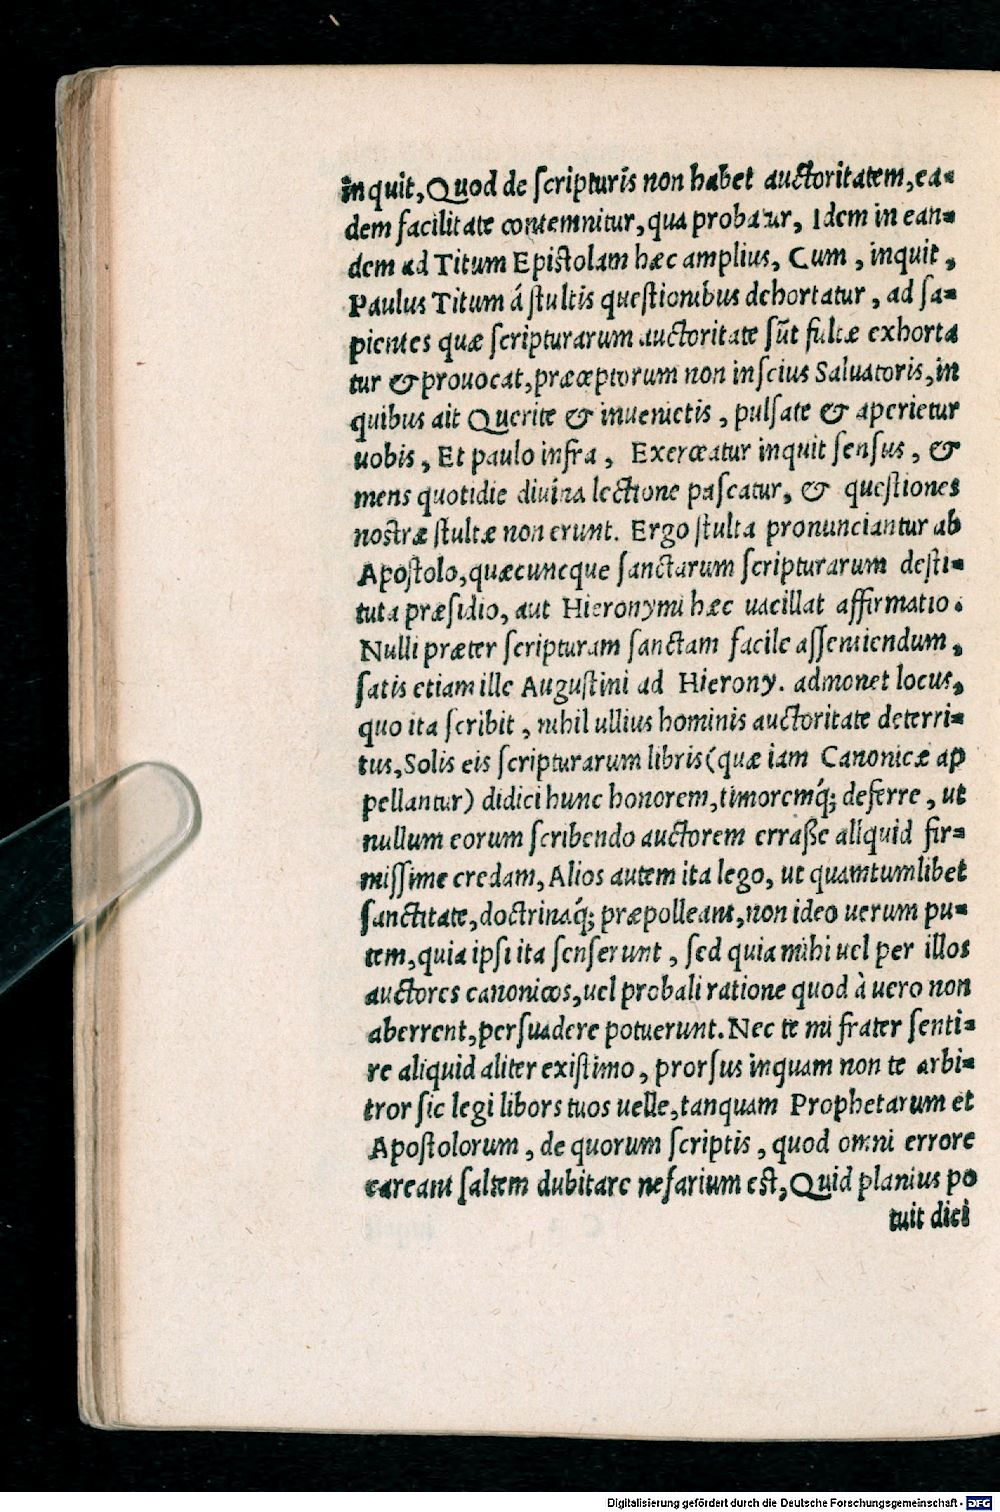 inquit, Quod de scripturis non habet auctoritatem, ea-
dem facilitate contemnitur, qua probatur, Idem in ean-
dem ad Titum Epistolam hæc amplius, Cum, inquit,
Paulus Titum á stultis questionibus dehortatur, ad sa-
pientes quæ scripturarum auctoritate sũt fultæ exhorta
tur & prouocat, præceptorum non inscius Saluatoris, in
quibus ait Querite & inuenietis, pulsate & aperietur
uobis, Et paulo infra, Exerceatur inquit sensus, &
mens quotidie diuina lectione pascatur, & questiones
nostræ stultæ non erunt. Ergo stulta pronunciantur ab
Apostolo, quæcuncque sanctarum scripturarum desti-
tuta præsidio, aut Hieronymi hæc uacillat affirmatio.
Nulli præter scripturam sanctam facile assentiendum,
satis etiam ille Augustini ad Hierony. admonet locus,
quo ita scribit, nihil ullius hominis auctoritate deterri-
tus, Solis eis scripturarum libris (quæ iam Canonicæ ap
pellantur) didici hunc honorem, timoremq́; deferre, ut
nullum eorum scribendo auctorem erraße aliquid fir-
missime credam, Alios autem ita lego, ut quamtumlibet
sanctitate, doctrinaq́; præpolleant, non ideo uerum pu-
tem, quia ipsi ita senserunt, sed quia mihi uel per illos
auctores canonicos, uel probali ratione quod à uero non
aberrent, persuadere potuerunt. Nec te mi frater senti-
re aliquid aliter existimo, prorsus inquam non te arbi-
tror sic legi libors tuos uelle, tanquam Prophetarum et
Apostolorum, de quorum scriptis, quod omni errore
careant saltem dubitare nefarium est, Quid planius po
tuit dici
Digitalisierung gefördert durch die Deutsche Forschungsgemeinschaft - DFG